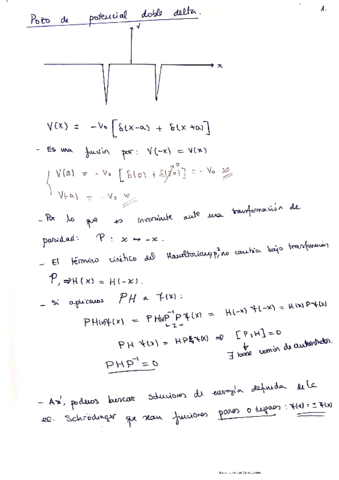 Pozo de potencial doble delta.
1.
V
x
V(x) = -V₀ [δ(x-a) + δ(x+a)]
- Es una función par: V(-x) = V(x)
V(a) = -V₀ [δ(0) + δ(2a)] = -V₀ ∞
0
V(-a) = -V₀ ∞
- Por lo que es invariante ante una transformación de
paridad: P: x ↔ -x.
- El término cinético del Hamiltoniano, p², no cambia bajo transformación
P, ⇒ H(x) = H(-x).
- Si aplicamos PH a Ψ(x):
PH(x)Ψ(x) = PH(x)P⁻¹PΨ(x) = H(-x)Ψ(-x) = H(x)PΨ(x)
PHΨ(x) = HPΨ(x) ⇒ [P,H]=0
∃ base común de autoestados
PHP⁻¹=0
- Así, podemos buscar soluciones de energía definida de la
ec. Schrödinger que sean funciones pares o impares: Ψ(x) = ±Ψ(x)